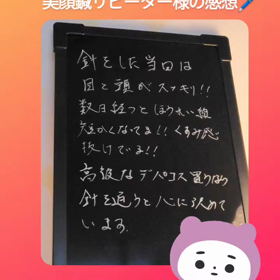 美顔鍼リピーター様の感想
針をした当日は
目と頭がスッキリ!!
数日経つとほうれい線
短かくなってる!! くすみ感
抜けてる!!
高級なデパコス買うなら
針を通うと心に決めて
います。